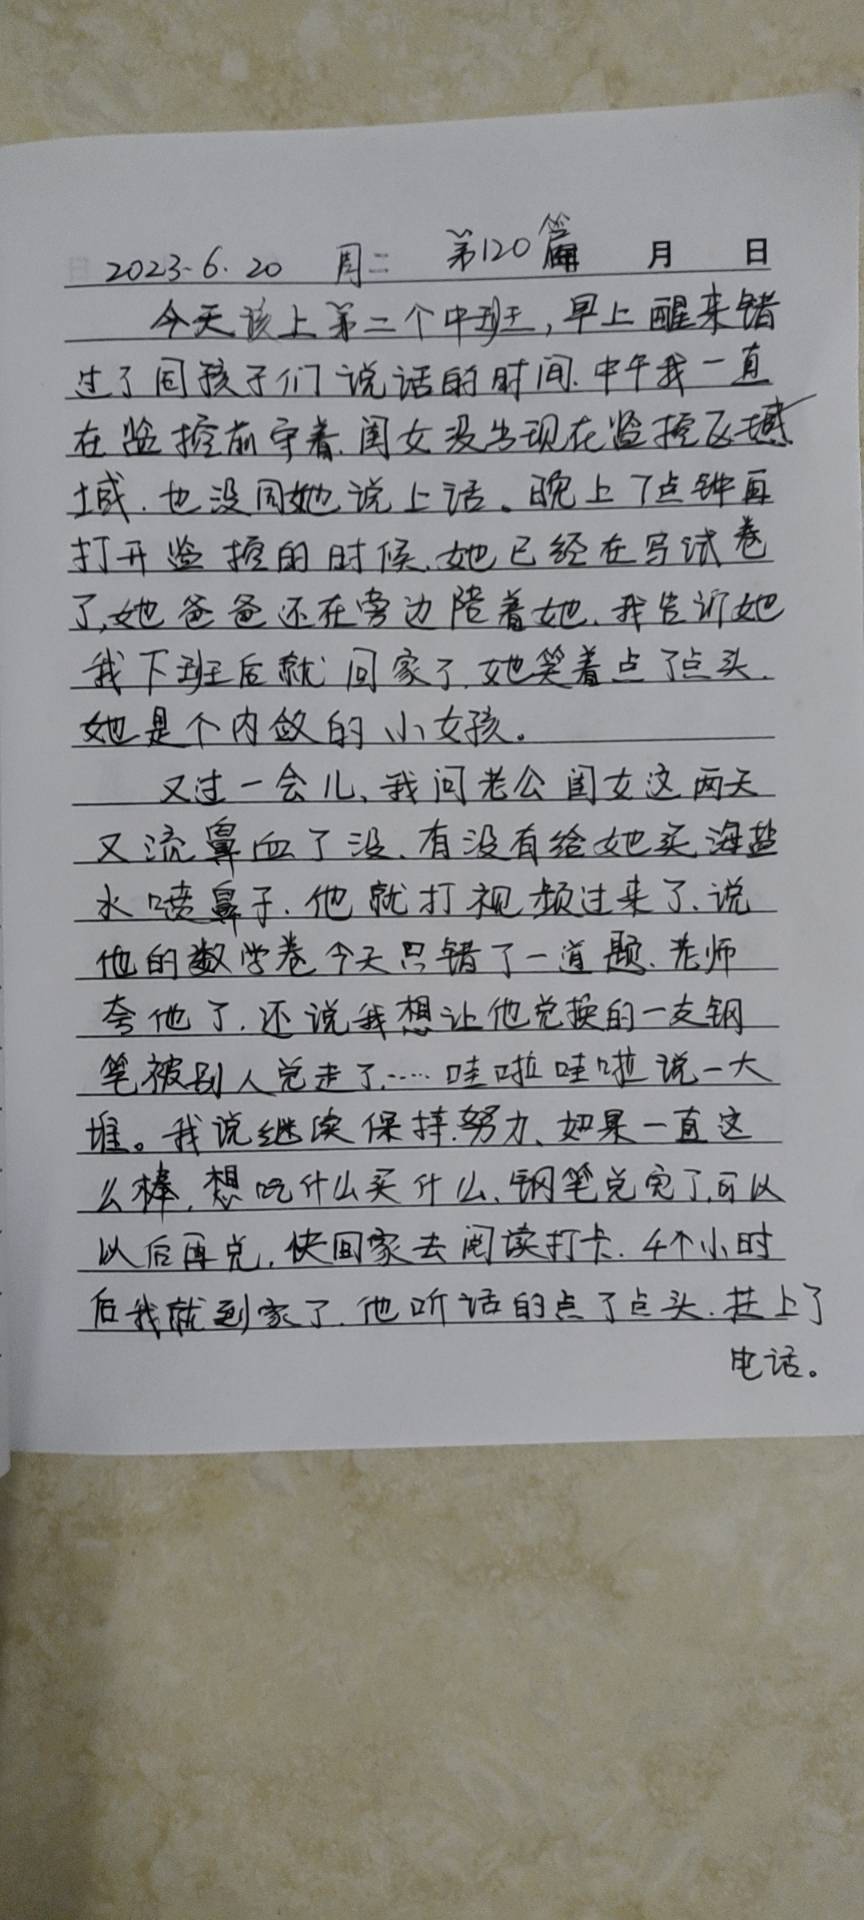 2023.6.20 周二 第120篇 月 日
今天该上第二个中班,早上醒来错
过了同孩子们说话的时间.中午我一直
在监控前守着.闺女没出现在监控区
域.也没同她说上话。晚上7点钟再
打开监控的时候.她已经在写试卷
了,她爸爸还在旁边陪着她.我告诉她
我下班后就回家了.她笑着点了点头.
她是个内敛的小女孩。
又过一会儿、我问老公闺女这两天
又流鼻血了没.有没有给她买海盐
水喷鼻子.他就打视频过来了.说
他的数学卷今天只错了一道题.老师
夸他了.还说我想让他兑换的一支钢
笔被别人兑走了.……哇啦哇啦说一大
堆。我说继续保持.努力、如果一直这
么棒,想吃什么买什么、钢笔兑完了,可以
以后再兑,快回家去阅读打卡.4个小时
后我就到家了.他听话的点了点头.挂上了
电话。